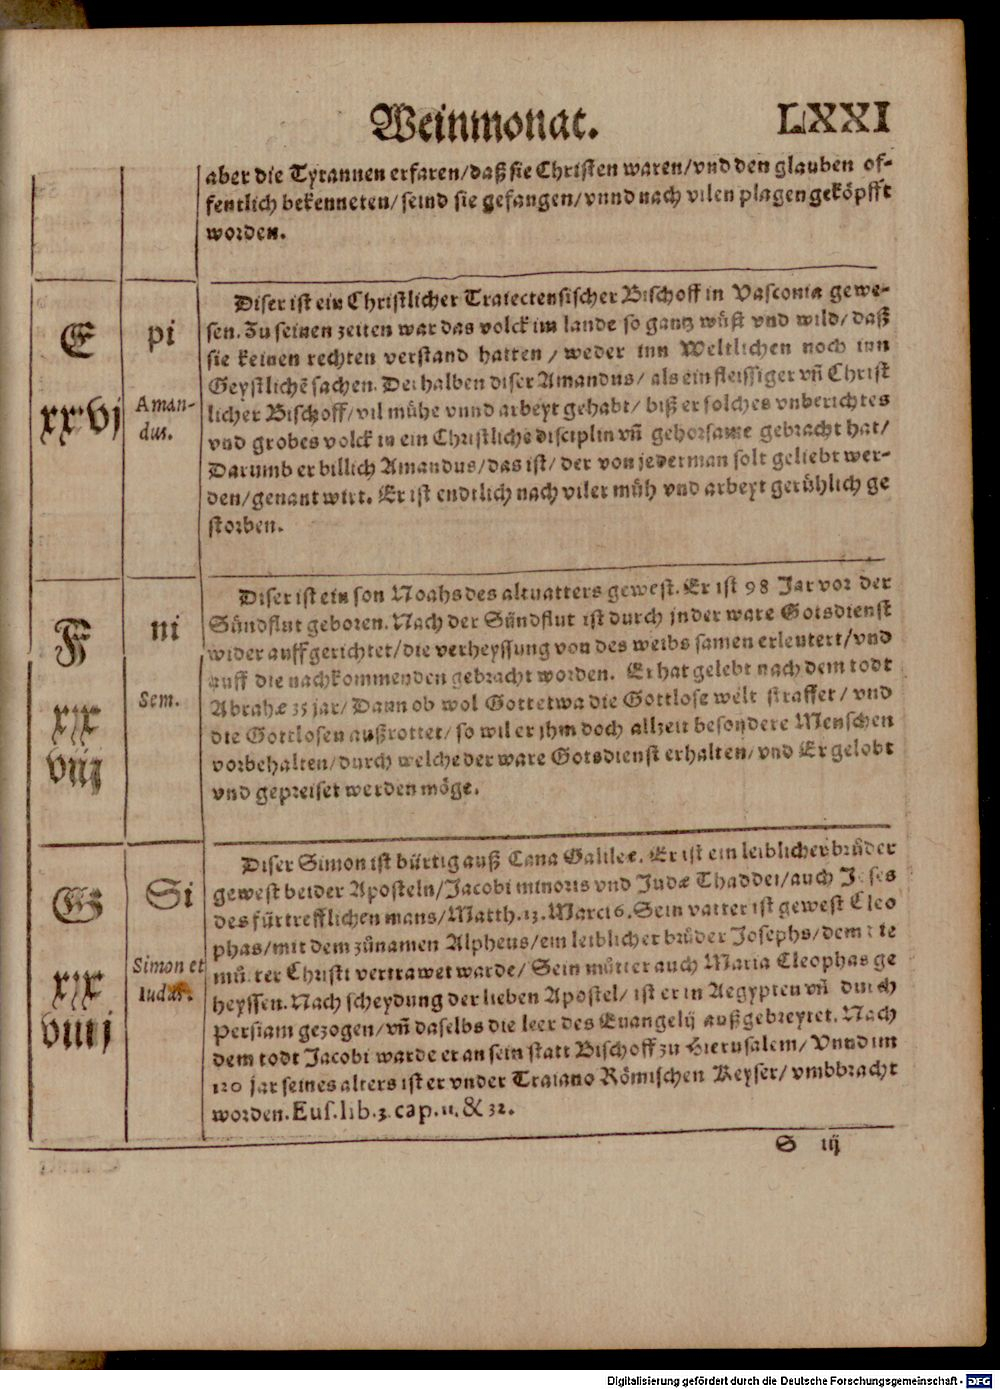 Weinmonat. LXXI
aber die Tyrannen erfaren/daß sie Christen waren/vnd den glauben of-
fentlich bekenneten/seind sie gefangen/vnnd nach vilen plagen geköpfft
worden.
E
xxvj
pi
Aman-
dus.
Diser ist ein Christlicher Traiectensischer Bischoff in Vasconia gewe-
sen. Zu seinen zeiten war das volck im lande so gantz wüst vnd wild/daß
sie keinen rechten verstand hatten/weder inn Weltlichen noch inn
Geystlichẽ sachen. Derhalben diser Amandus/als ein fleissiger vñ Christ
licher Bischoff/vil mühe vnnd arbeyt gehabt/biß er solches vnberichtes
vnd grobes volck in ein Christliche disciplin vñ gehorsame gebracht hat/
Darumb er billich Amandus/das ist/der von jederman solt geliebt wer-
den/genant wirt. Er ist endtlich nach viler müh vnd arbeyt gerühlich ge
storben.
F
xx
viij
ni
Sem.
Diser ist ein son Noahs des altuatters gewest. Er ist 98 Jar vor der
Sündflut geboren. Nach der Sündflut ist durch jn der ware Gotsdienst
wider auffgerichtet/die verheyssung von des weibs samen erleutert/vnd
auff die nachkommenden gebracht worden. Er hat gelebt nach dem todt
Abrahæ 35 jar/Dann ob wol Gott etwa die Gottlose welt straffet/vnd
die Gottlosen außrottet/so wil er jhm doch allzeit besondere Menschen
vorbehalten/durch welche der ware Gotsdienst erhalten/vnd Er gelobt
vnd gepreiset werden möge.
G
xx
viiij
Si
Simon et
Iudas.
Diser Simon ist bürtig auß Cana Galilee. Er ist ein leiblicher brůder
gewest beider Aposteln/Jacobi minoris vnd Judæ Thaddei/auch Joses
des fürtrefflichen mans/Matth. 13. Marci 6. Sein vatter ist gewest Cleo
phas/mit dem zůnamen Alpheus/ein leiblicher brůder Josephs/dem die
můtter Christi vertrawet warde/Sein můtter auch Maria Cleophas ge
heyssen. Nach scheydung der lieben Apostel/ist er in Aegypten vñ durch
Persiam gezogen/vñ daselbs die leer des Euangelij außgebreytet. Nach
dem todt Jacobi warde er an sein statt Bischoff zu Hierusalem/Vnnd im
120 jar seines alters ist er vnder Traiano Römischen Keyser/vmbbracht
worden. Eus. lib. 3. cap. 11. & 32.
S iij
Digitalisierung gefördert durch die Deutsche Forschungsgemeinschaft - DFG